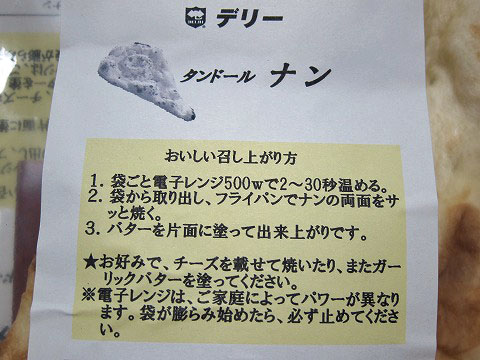 デリー
タンドール ナン
おいしい召し上がり方
1. 袋ごと電子レンジ500wで2～30秒温める。
2. 袋から取り出し、フライパンでナンの両面をサ
ッと焼く。
3. バターを片面に塗って出来上がりです。
★お好みで、チーズを載せて焼いたり、またガー
リックバターを塗ってください。
※電子レンジは、ご家庭によってパワーが異なり
ます。袋が膨らみ始めたら、必ず止めてくださ
い。